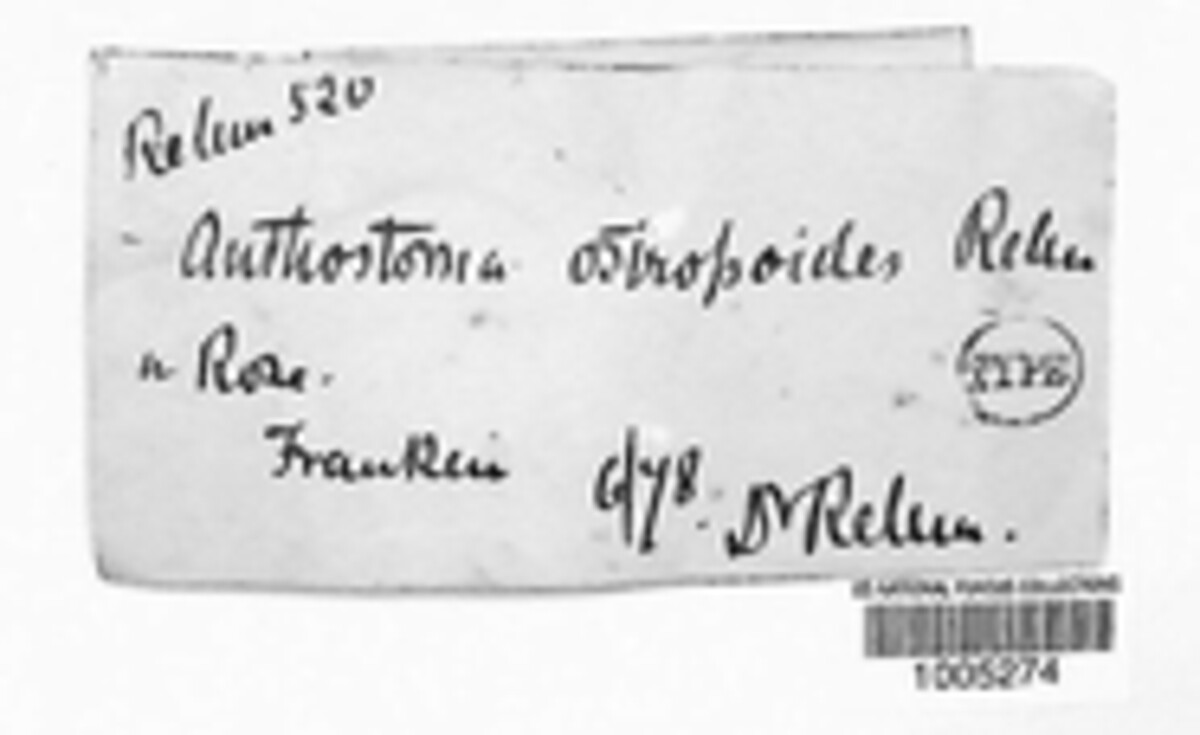 Rehm 520
Anthostoma ostropoides Rehm
a Rosae.
Franken 6/78. Dr Rehm.
US NATIONAL FUNGUS COLLECTIONS
1005274